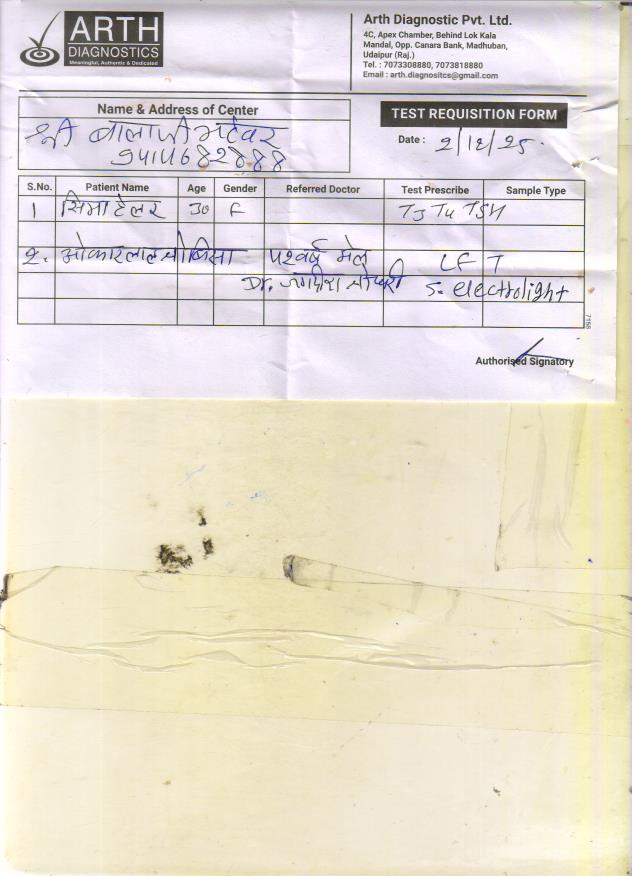 ARTH
DIAGNOSTICS
Meaningful, Authentic & Dedicated
Arth Diagnostic Pvt. Ltd.
4C, Apex Chamber, Behind Lok Kala
Mandal, Opp. Canara Bank, Madhuban,
Udaipur (Raj.)
Tel. : 7073308880, 7073818880
Email : arth.diagnositcs@gmail.com
Name & Address of Center
TEST REQUISITION FORM
श्री बालाजी भटेवर
9414682888
Date : 2/12/25.
S.No. Patient Name Age Gender Referred Doctor Test Prescribe Sample Type
1 सिमा टेलर 30 F T3 T4 TSH
2. ओंकारलाल 55 वर्ष मेल LFT
Dr. जगदीश चौधरी S. electrolight
7156
Authorised Signatory